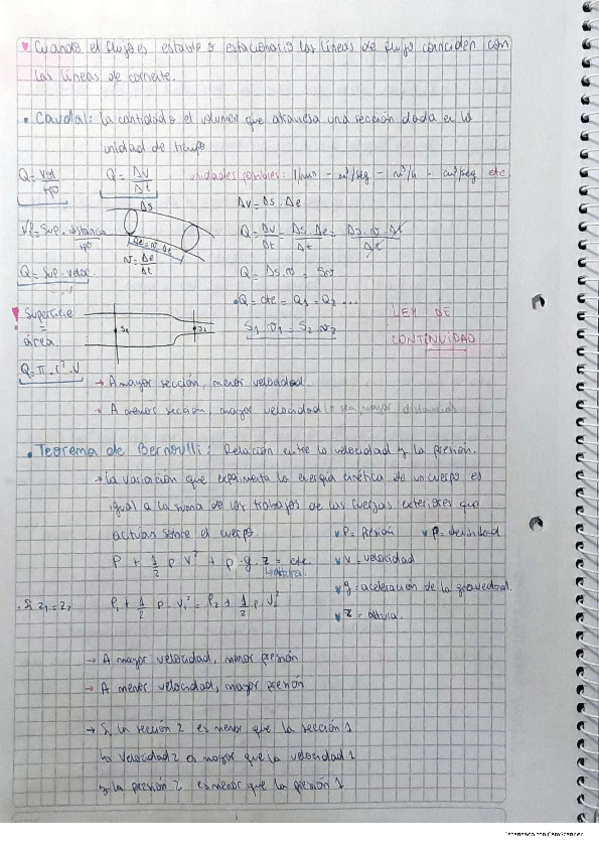 Cuando el flujo es estable o estacionario las líneas de flujo coinciden con
las líneas de corriente.
• Caudal: la cantidad o el volumen que atraviesa una sección dada en la
unidad de tiempo
Q = vol / tpo Q = ΔV / Δt unidades posibles: l/min - m³/seg - m³/h - cm³/seg etc
Δs ΔV = Δs . Δe
Q = Sup. distancia / tpo Δe = v . Δt Q = ΔV / Δt = Δs . Δe / Δt = Δs . v . Δt / Δt
Q = Sup. veloc. v = Δe / Δt Q = Δs . v = S . v
• Q = cte = Q1 = Q2 ...
! Superficie = área S1 S2 S1 . v1 = S2 . v2 LEY DE
CONTINUIDAD
Q = π . r² . v
→ A mayor sección, menor velocidad.
→ A menor sección, mayor velocidad
• Teorema de Bernoulli: Relación entre la velocidad y la presión.
→ La variación que experimenta la energía cinética de un cuerpo es
igual a la suma de los trabajos de las fuerzas exteriores que
actúan sobre el cuerpo.
P = presión ρ = densidad
P + 1/2 ρ v² + ρ . g . z = cte.
altura
v = velocidad
g = aceleración de la gravedad.
. Si z1 = z2 P1 + 1/2 ρ . v1² = P2 + 1/2 ρ . v2²
z = altura.
→ A mayor velocidad, menor presión
→ A menor velocidad, mayor presión
→ Si la sección 2 es menor que la sección 1
la velocidad 2 es mayor que la velocidad 1
y la presión 2 es menor que la presión 1